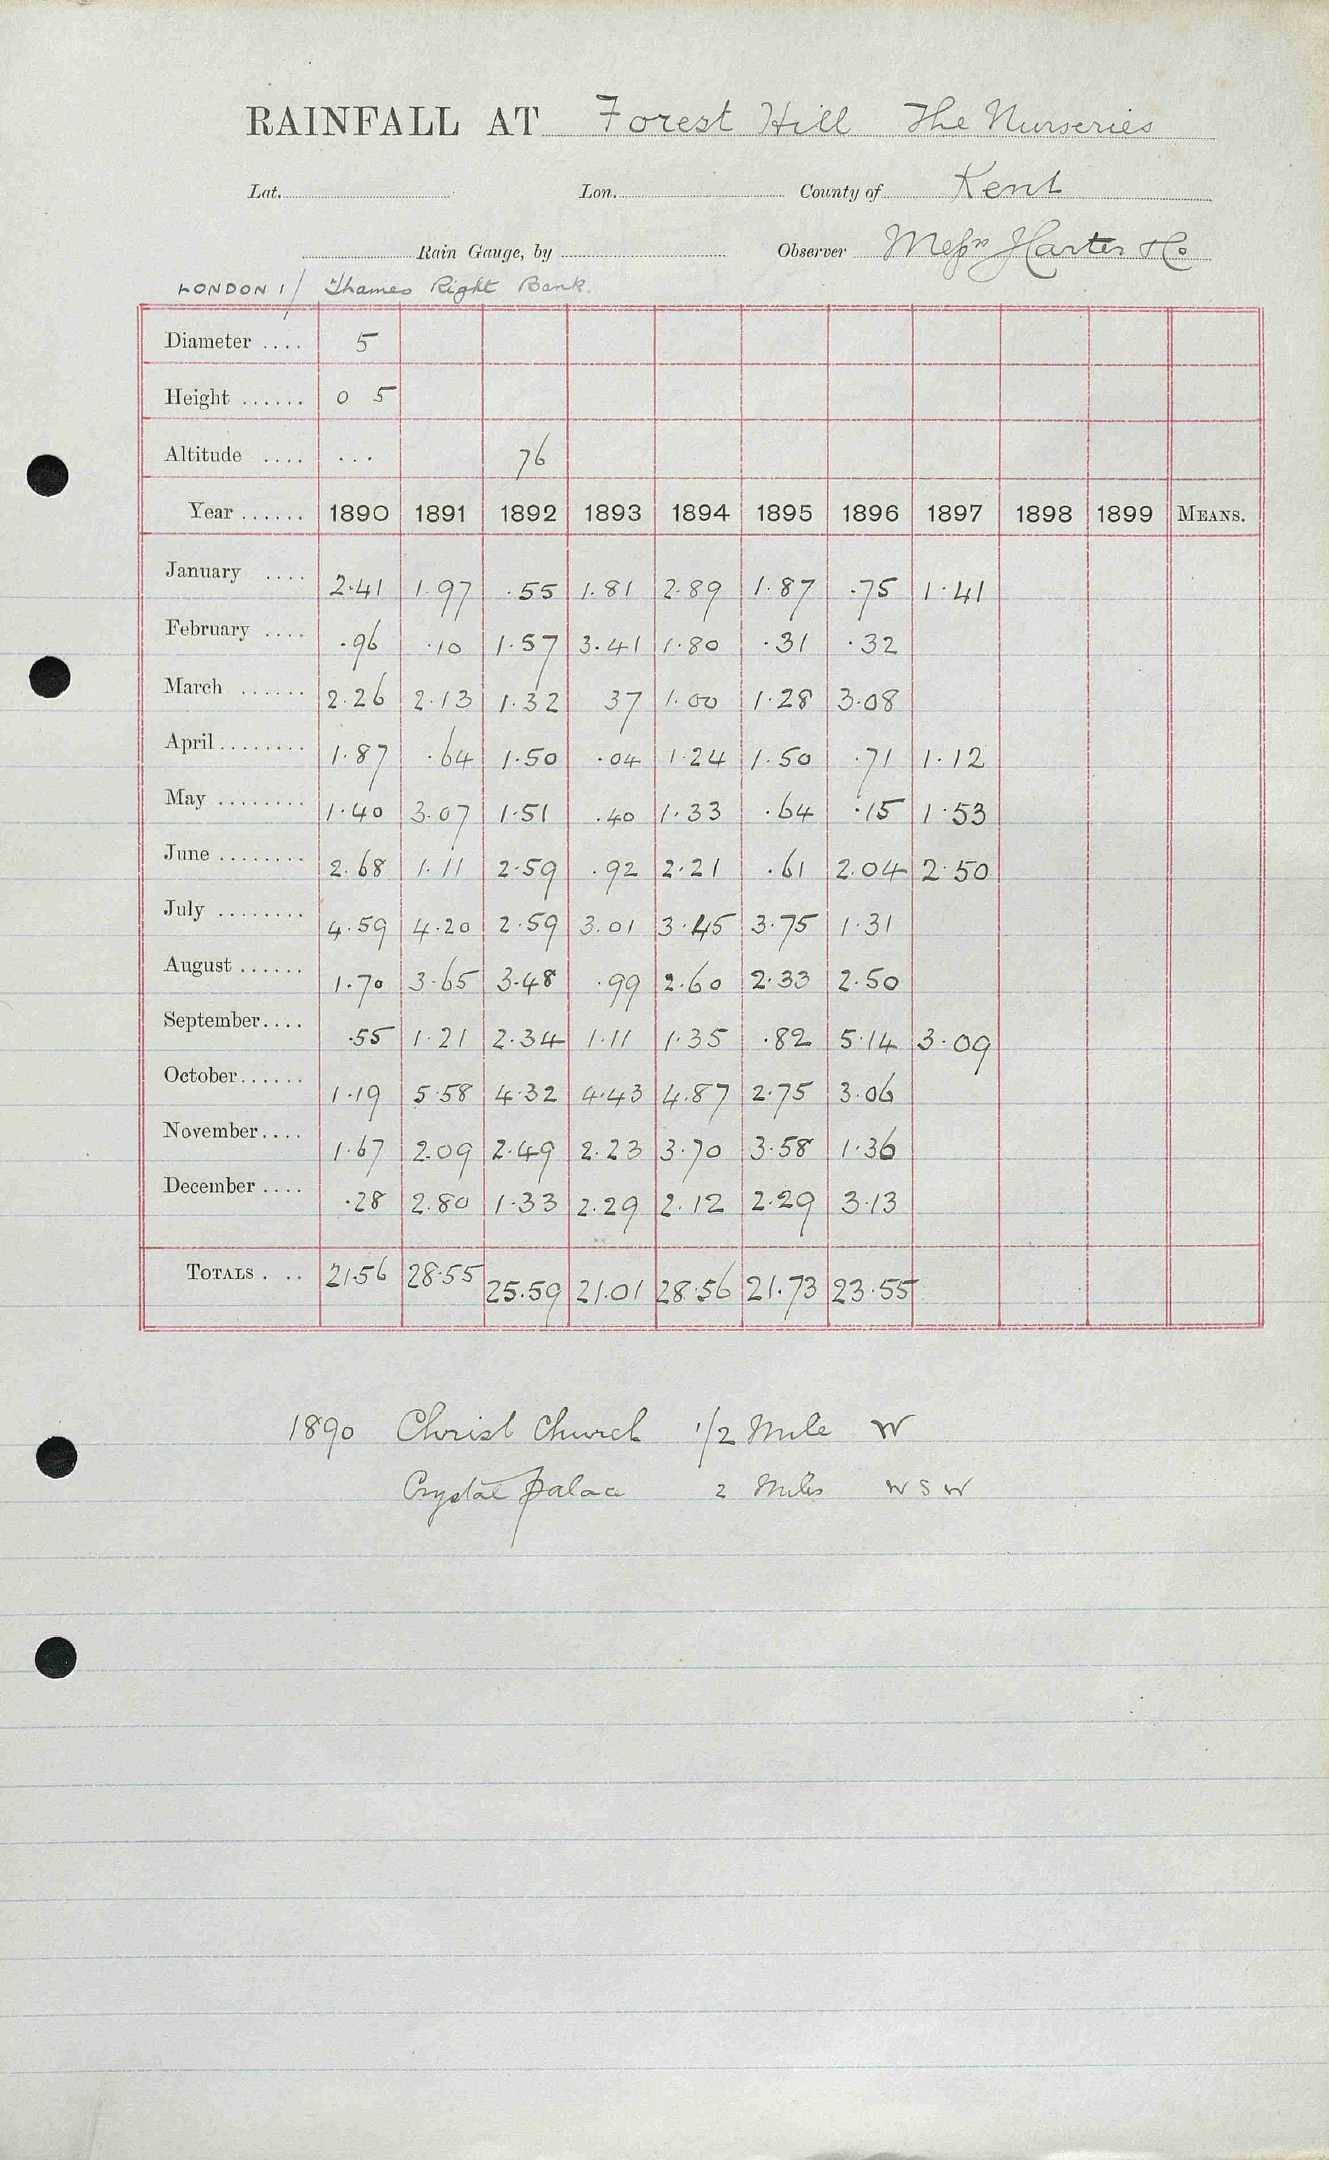 RAINFALL AT Forest Hill The Nurseries
Lat. Lon. County of Kent
Rain Gauge, by Observer Messrs Harter & Co
LONDON 1/ Thames Right Bank.
Diameter .... 5
Height ...... 0 5
Altitude .... ... 76
Year ...... 1890 1891 1892 1893 1894 1895 1896 1897 1898 1899 MEANS.
January .... 2.41 1.97 .55 1.81 2.89 1.87 .75 1.41
February .... .96 .10 1.57 3.41 1.80 .31 .32
March ...... 2.26 2.13 1.32 37 1.00 1.28 3.08
April ........ 1.87 .64 1.50 .04 1.24 1.50 .71 1.12
May ........ 1.40 3.07 1.51 .40 1.33 .64 .15 1.53
June ........ 2.68 1.11 2.59 .92 2.21 .61 2.04 2.50
July ........ 4.59 4.20 2.59 3.01 3.45 3.75 1.31
August ...... 1.70 3.65 3.48 .99 2.60 2.33 2.50
September.... .55 1.21 2.34 1.11 1.35 .82 5.14 3.09
October ...... 1.19 5.58 4.32 4.43 4.87 2.75 3.06
November .... 1.67 2.09 2.49 2.23 3.70 3.58 1.36
December .... .28 2.80 1.33 2.29 2.12 2.29 3.13
TOTALS . .. 21.56 28.55 25.59 21.01 28.56 21.73 23.55
1890 Christ Church 1/2 Mile W
Crystal Palace 2 Miles W S W